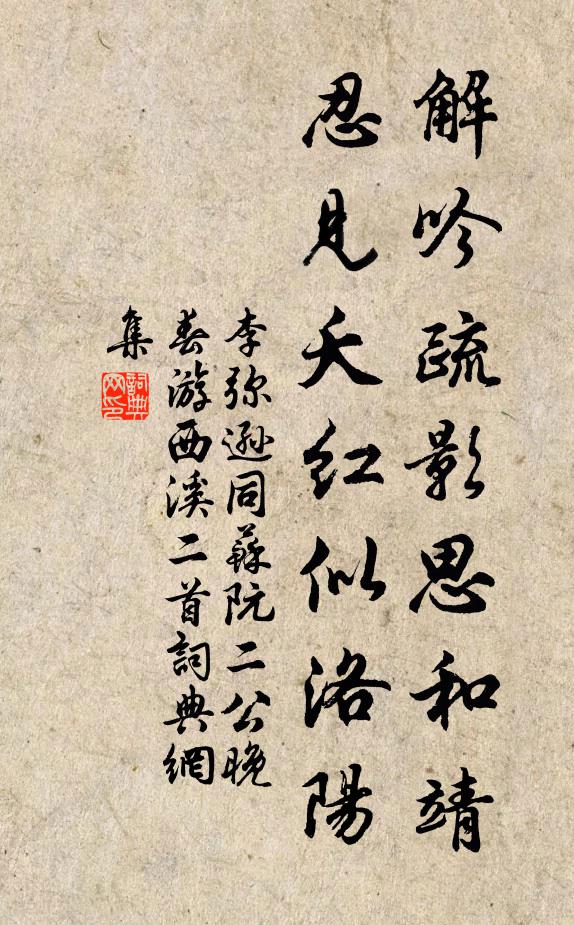 解吟疏影思和靖
忍見夭紅似洛陽
李弥遜同蘇阮二公晚
春游西溪二首詞典網
集
詞典
网印